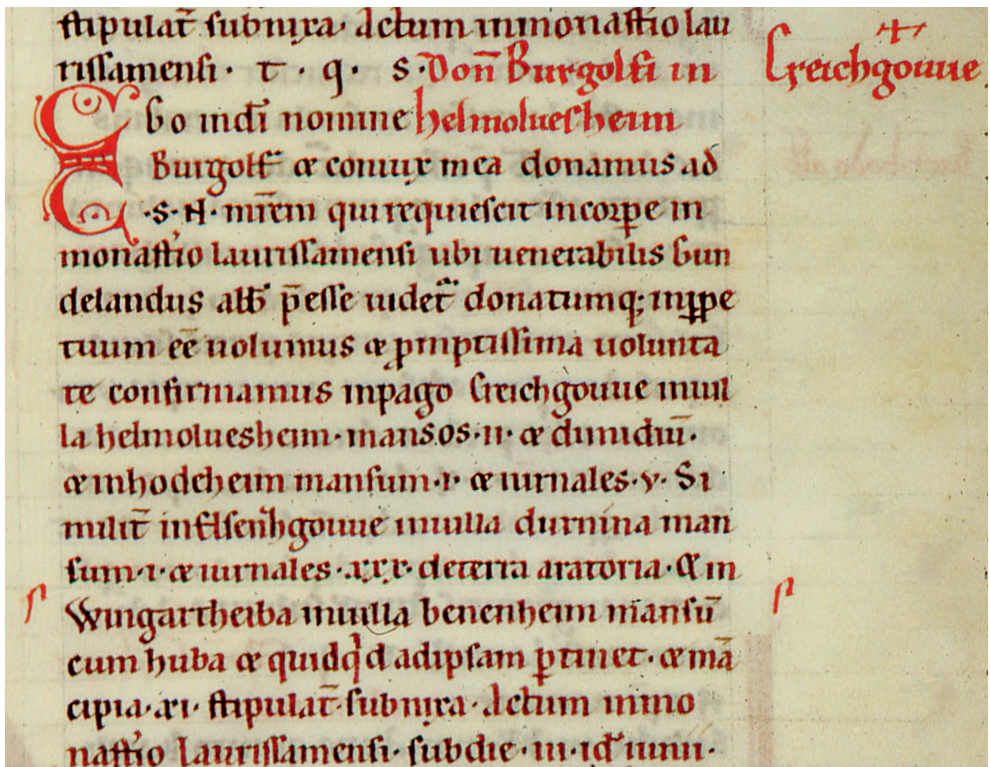 stipulat̄ subnixa. Actum in monast̄io lau
rissamensi. t. q. s. Don̄ Burgolfi in Creichgouue
Ego in dī nomine helmoluesheim
Burgolf̄ & coniux mea donamus ad
.S.N. mr̄em qui requiescit in corpe in
monast̄io laurissamensi ubi uenerabilis Gun
delandus abb̄ p̄esse uidet̄ donatumq; inppe
tuum eē uolumus & p̱mptissima uolunta
te confirmamus in pago Creichgouue in uil
la helmoluesheim. mansos.ii. & dimidiū.
& in hodcheim mansum.i. & iurnales.v. Si
milit̄ in Elsenhgouue in uilla durnina man
sum.i. & iurnales.xxx. de terra aratoria. & in
Wingartheiba in uilla benenheim mansū
cum huba & quidqd ad ipsam ptinet. & mā
cipia.xi. stipulat̄ subnixa. Actum in mo
nast̄io Laurissamensi. sub die.iii.id' iunii.